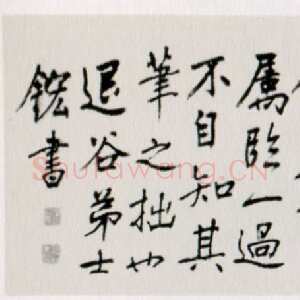 属臨一過
不自知其
筆之拙也
退谷弟士
鋐書
Shufawang.CN